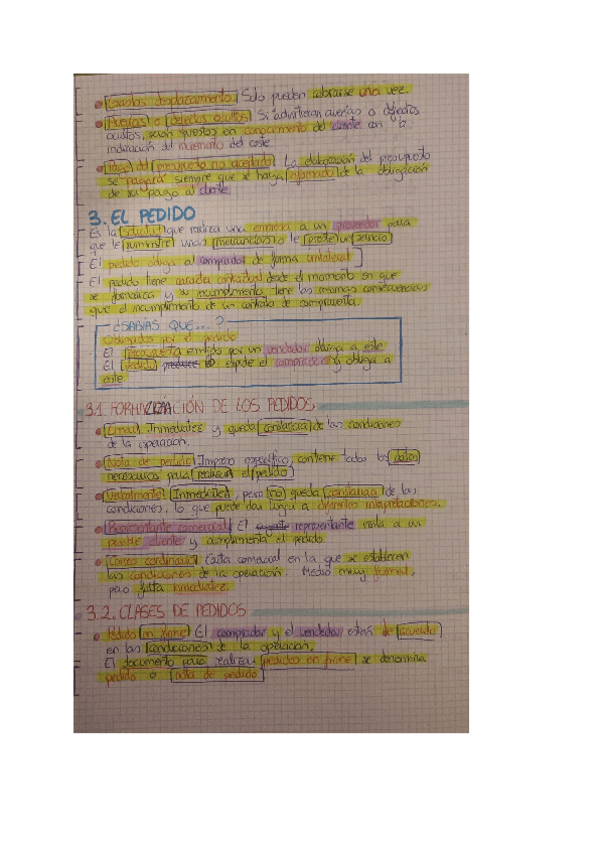 • Gastos desplazamiento: Solo pueden cobrarse una vez.
• Averías o defectos ocultos: Si advirtieran averías o defectos
ocultos, serán puestos en conocimiento del cliente con la
indicación del incremento del coste.
• Pago del presupuesto no aceptado: La elaboración del presupuesto
se "pagará" siempre que se haya informado de la obligación
de su pago al cliente.
3. EL PEDIDO
Es la solicitud que realiza una empresa a un proveedor para
que le suministre unas mercancías o le preste un servicio
El pedido obliga al comprador de forma unilateral
El pedido tiene carácter contractual desde el momento en que
se formaliza y su incumplimiento tiene las mismas consecuencias
que el incumplimiento de un contrato de compraventa.
¿SABÍAS QUE...?
Obligados por el pedido
El presupuesta emitido por un vendedor obliga a este
El pedido lo expide el comprador y obliga a
este.
3.1. FORMALIZACIÓN DE LOS PEDIDOS
• Email: Inmediatez y queda constancia de las condiciones
de la operación.
• Nota de pedido: Impreso específico, contiene todos los datos
necesarios para realizar el pedido
• Verbalmente: Inmediatez, pero no queda constancia de las
condiciones, lo que puede dar lugar a diferentes interpretaciones.
• Representante comercial: El representante visita a un
posible cliente y cumplimenta el pedido
• Correo ordinario: Carta comercial en la que se establecen
las condiciones de la operación. Medio muy formal,
pero falta inmediatez.
3.2. CLASES DE PEDIDOS
• Pedido en firme: El comprador y el vendedor están de acuerdo
en las condiciones de la operación.
El documento para realizar pedidos en firme se denomina
pedido o nota de pedido